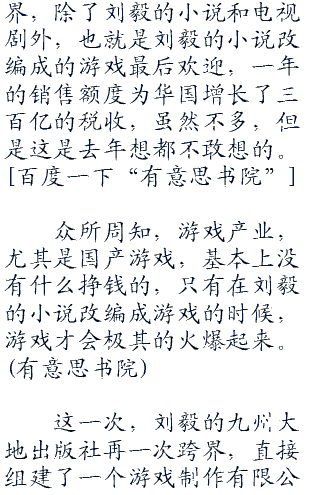 界，除了刘毅的小说和电视
剧外，也就是刘毅的小说改
编成的游戏最后欢迎，一年
的销售额度为华国增长了三
百亿的税收，虽然不多，但
是这是去年想都不敢想的。
[百度一下“有意思书院”]
众所周知，游戏产业，
尤其是国产游戏，基本上没
有什么挣钱的，只有在刘毅
的小说改编成游戏的时候，
游戏才会极其的火爆起来。
(有意思书院)
这一次，刘毅的九州大
地出版社再一次跨界，直接
组建了一个游戏制作有限公